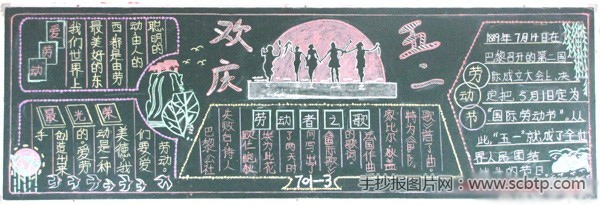 欢庆
五一
爱劳动
我们世界上
最美好的东
西都是由劳
动由人的
聪明的
最光荣
手
创造出来
的。爱劳
动是一种
美德,我
们要爱
劳动。
劳动者之歌
巴黎公社
欧仁
埃为此花
了两天
间写出了
的歌词
法国作曲
家比尔
特为
歌谱了曲
701-3
劳动节
1889年7月14日在
巴黎召开的第一国
际成立大会上,决
定把,5月1日定为
"国际劳动节",从
此,"五一"就成了全世
界人民团结
战斗的节日
手抄报图片网
www.scbtp.com